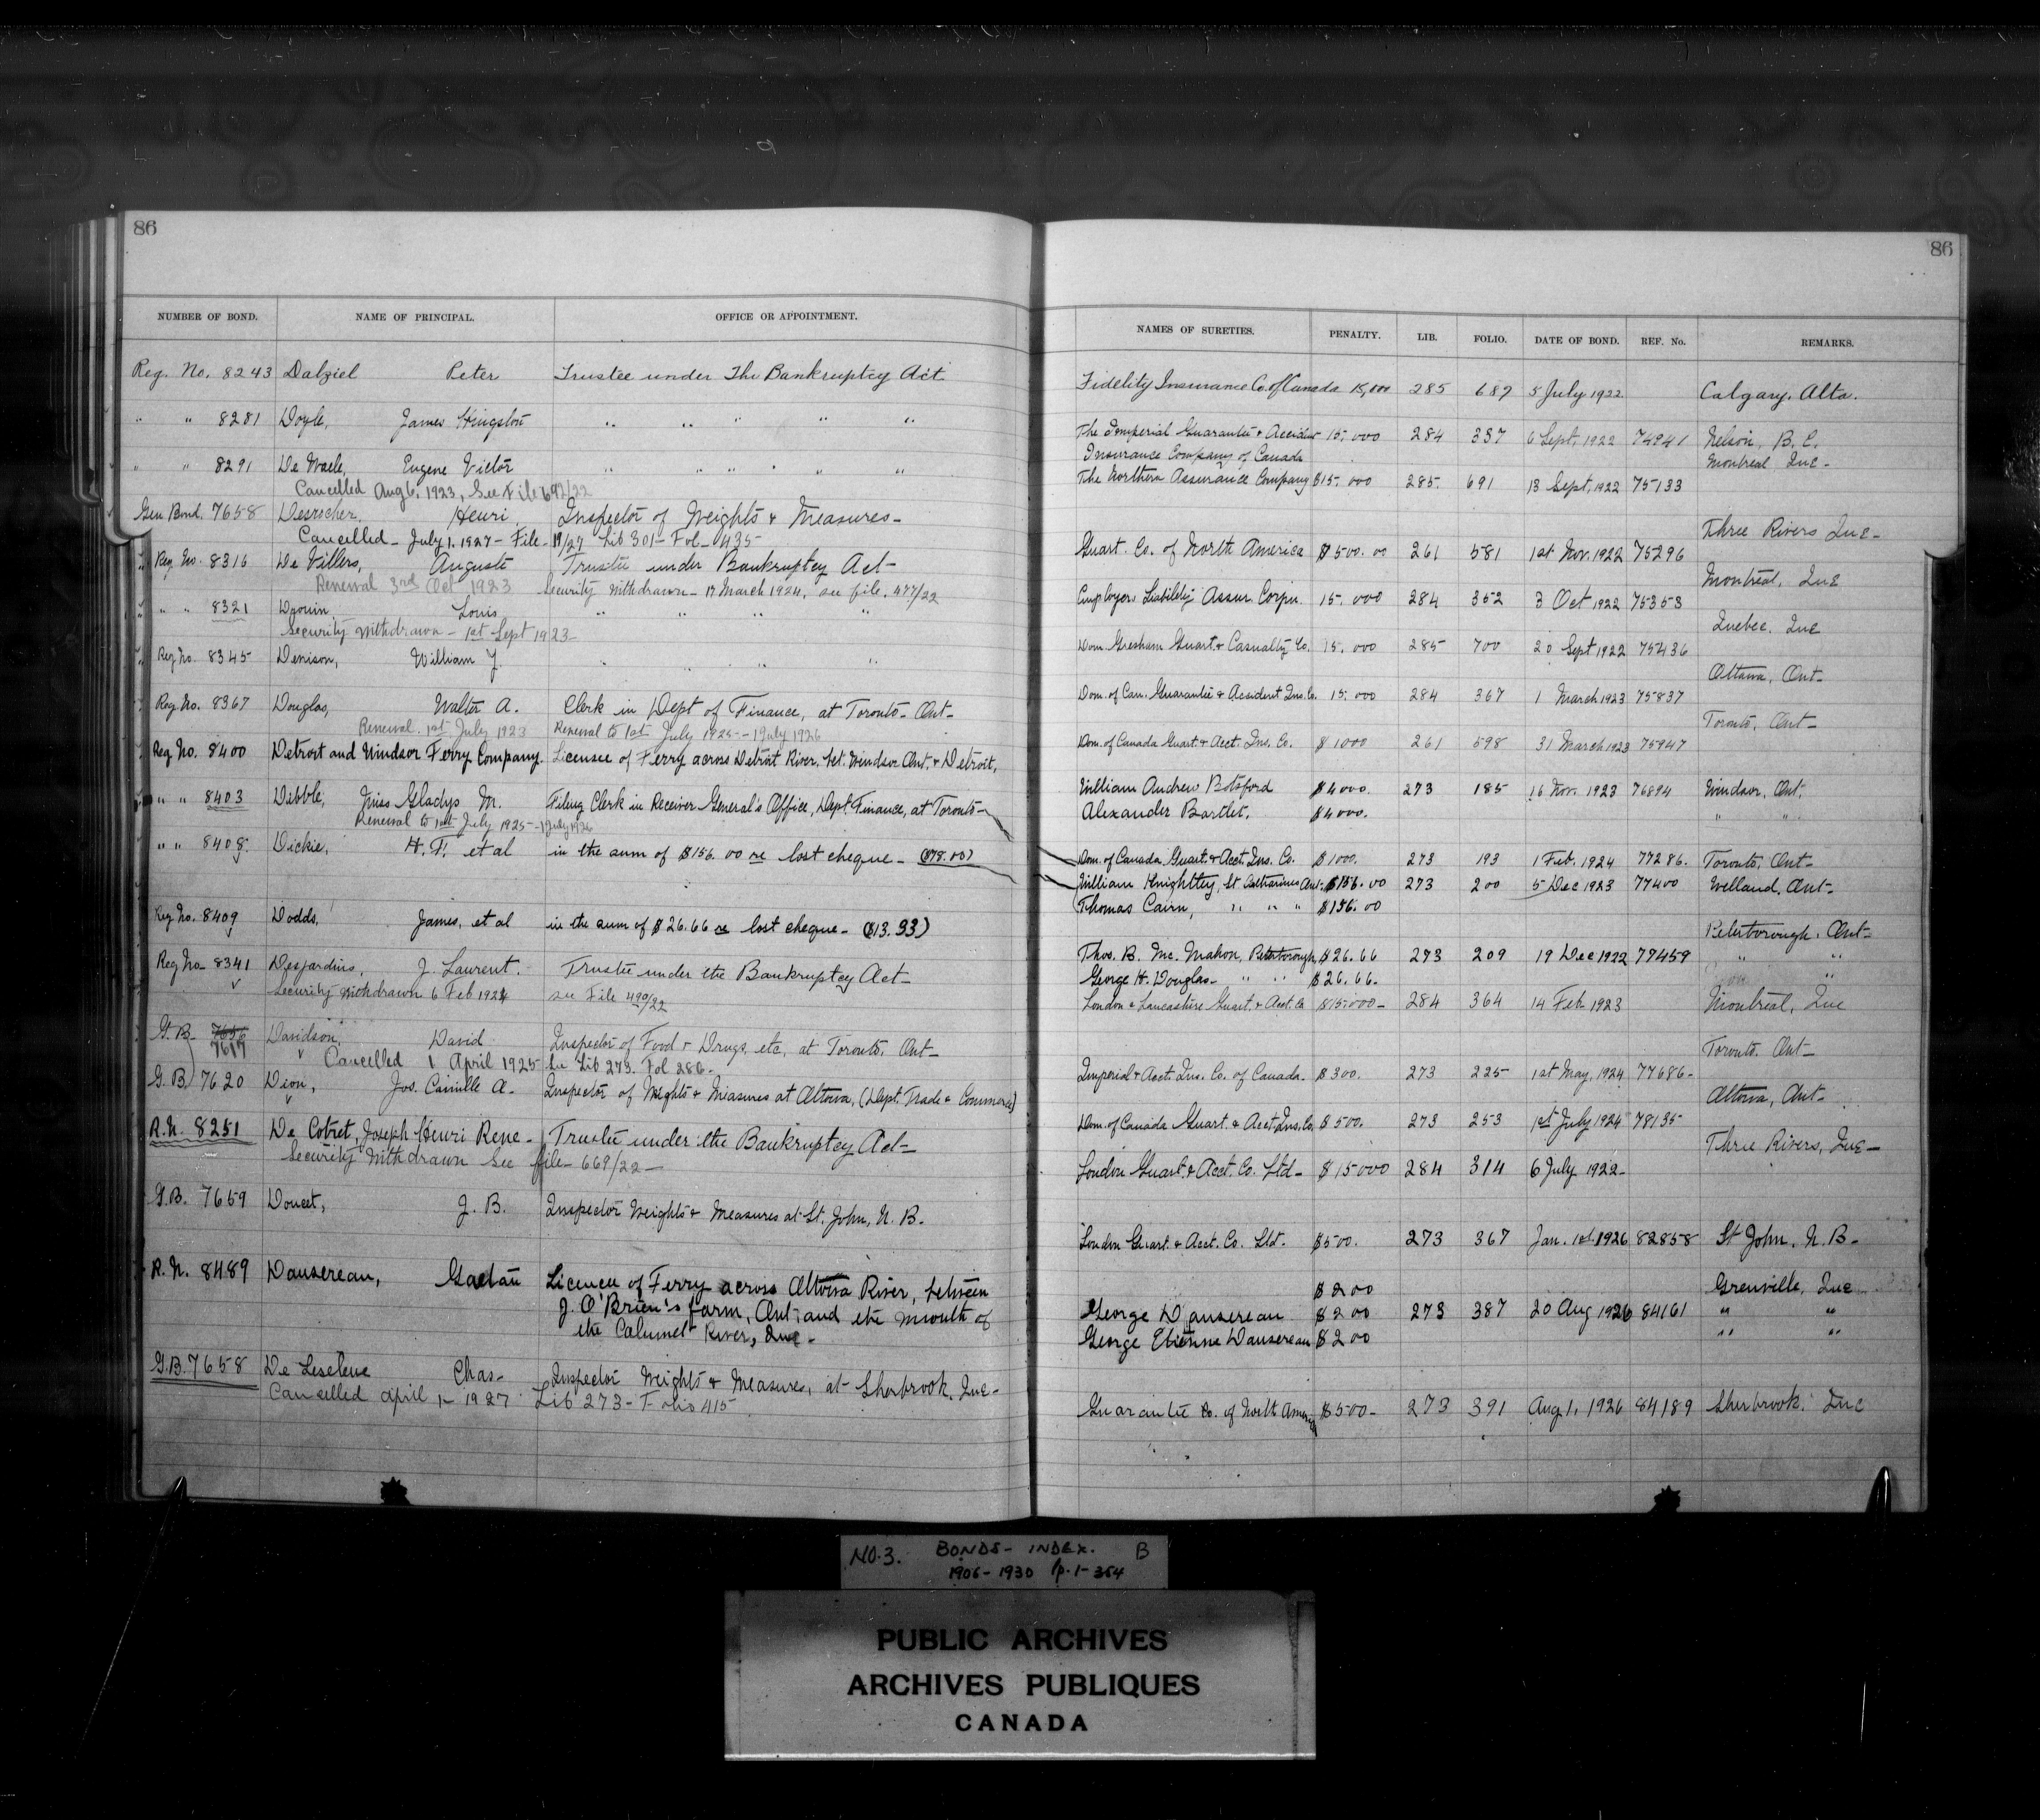 86
NUMBER OF BOND. NAME OF PRINCIPAL. OFFICE OR APPOINTMENT.
Reg. No. 8243 Dalziel Peter Trustee under The Bankruptcy Act
" " 8281 Doyle, James Hingston " " " " "
" " 8291 De Waele, Eugene Victor " " " " "
Cancelled Aug 6, 1923, See File 692/22
Gen Bond. 7658 Desrocher, Henri, Inspector of Weights & Measures-
Cancelled- July 1. 1927- File- 19/27 Lib 301- Fol- 435-
Reg No. 8316 De Villers, Auguste Trustee under Bankruptcy Act-
Renewal 3rd Oct 1923 Security Withdrawn- 17 March 1924, see file. 477/22
" " 8321 Drouin, Louis " " "
Security Withdrawn- 1st Sept 1923-
Reg No. 8345 Denison, William J. " " " "
Reg No. 8367 Douglas, Walter A. Clerk in Dept of Finance, at Toronto- Ont-
Renewal. 1st July 1923 Renewal to 1st July 1925 - 1 July 1926
Reg No. 8400 Detroit and Windsor Ferry Company. Licensee of Ferry across Detroit River, bet. Windsor Ont. & Detroit,
" " 8403 Dibble, Miss Gladys M. Filing Clerk in Receiver General's Office, Dept. Finance, at Toronto-
Renewal to 1st July 1925 - 1 July 1926
" " 8408. Dickie, H. F. et al in the sum of $156.00 re lost cheque- ($78.00)
Reg No. 8409 Dodds, James, et al in the sum of $26.66 re lost cheque- ($13.33)
Reg No- 8341 Desjardins, J. Laurent. Trustee under the Bankruptcy Act-
Security Withdrawn 6 Feb 1924 see File 490/22
G. B. 7656 7617 Davidson, David Inspector of Food & Drugs, etc, at Toronto, Ont-
Cancelled 1 April 1925- in Lib 273. Fol 286-
G. B. 7620 Dion, Jos. Camille A. Inspector of Weights & Measures at Ottawa, (Dept. Trade & Commerce)
R.N. 8251 De Cotret, Joseph Henri Rene- Trustee under the Bankruptcy Act-
Security Withdrawn See file- 669/22-
G.B. 7659 Doucet, J. B. Inspector Weights & Measures at St. John, N. B.
R.N. 8489 Dansereau, Gaetan Licence of Ferry across Ottawa River, between
J. O'Brien's farm, Ont. and the mouth of
the Calumet River, Que-
G.B. 7658 De Leseleuc Chas- Inspector Weights & Measures, at Sherbrook, Que-
Cancelled April 1- 1927 Lib 273- Folio 415
86
NAMES OF SURETIES. PENALTY. LIB. FOLIO. DATE OF BOND. REF. No. REMARKS.
Fidelity Insurance Co. of Canada 15,000 285 687 5 July 1922 Calgary, Alta.
The Imperial Guarantee & Accident 15,000 284 337 6 Sept. 1922 74941 Nelson, B. C.
Insurance Company of Canada Montreal Que-
The Northern Assurance Company $15,000 285. 691 13 Sept, 1922 75133
Three Rivers Que-
Guart. Co. of North America $500.00 261 581 1st Nov. 1922 75296
Montreal, Que
Employers Liability Assur. Corpn. 15,000 284 352 3 Oct 1922 75353
Quebec, Que
Dom. Gresham Guart. & Casualty Co. 15,000 285 700 20 Sept 1922 75436
Ottawa, Ont-
Dom. of Can. Guarantee & Accident Ins. Co. 15,000 284 367 1 March 1923 75837
Toronto, Ont-
Dom. of Canada Guart. & Acct. Ins. Co. $1000 261 598 31 March 1923 75947
William Andrew Botsford $4000. 273 185 16 Nov. 1923 76894 Windsor, Ont.
Alexander Bartlet. $4000. " "
Dom. of Canada Guart. & Acct. Ins. Co. $1000. 273 193 1 Feb. 1924 77286. Toronto, Ont-
William Knightley, St Catharines Ont. $156.00 273 200 5 Dec 1923 77400 Welland, Ont-
Thomas Cairn, " " " $156.00
Peterborough, Ont-
Thos. B. Mc. Mahon, Peterborough, $26.66 273 209 19 Dec 1922 77459 " "
George H. Douglas- " " $26.66. "
London & Lancashire Guart. & Acct. Co $15,000- 284 364 14 Feb 1923 Montreal, Que
Toronto. Ont-
Imperial & Acct. Ins. Co. of Canada- $300. 273 225 1st May, 1924 77686-
Ottawa, Ont-
Dom. of Canada Guart. & Acct. Ins. Co. $500. 273 253 1st July 1924 78135
Three Rivers, Que-
London Guart. & Acct. Co. Ltd- $15000 284 314 6 July 1922-
London Guart. & Acct. Co. Ltd. $500. 273 367 Jan. 1st 1926 82858 St John, N. B-
$200 Grenville, Que
George Dansereau $200 273 387 20 Aug 1926 84161 " "
George Etienne Dansereau $200 " "
Guarantee Co. of North America $500- 273 391 Aug 1, 1926 84189 Sherbrook. Que
NO. 3. BONDS - INDEX. B
1906-1930 p. 1-354
PUBLIC ARCHIVES
ARCHIVES PUBLIQUES
CANADA